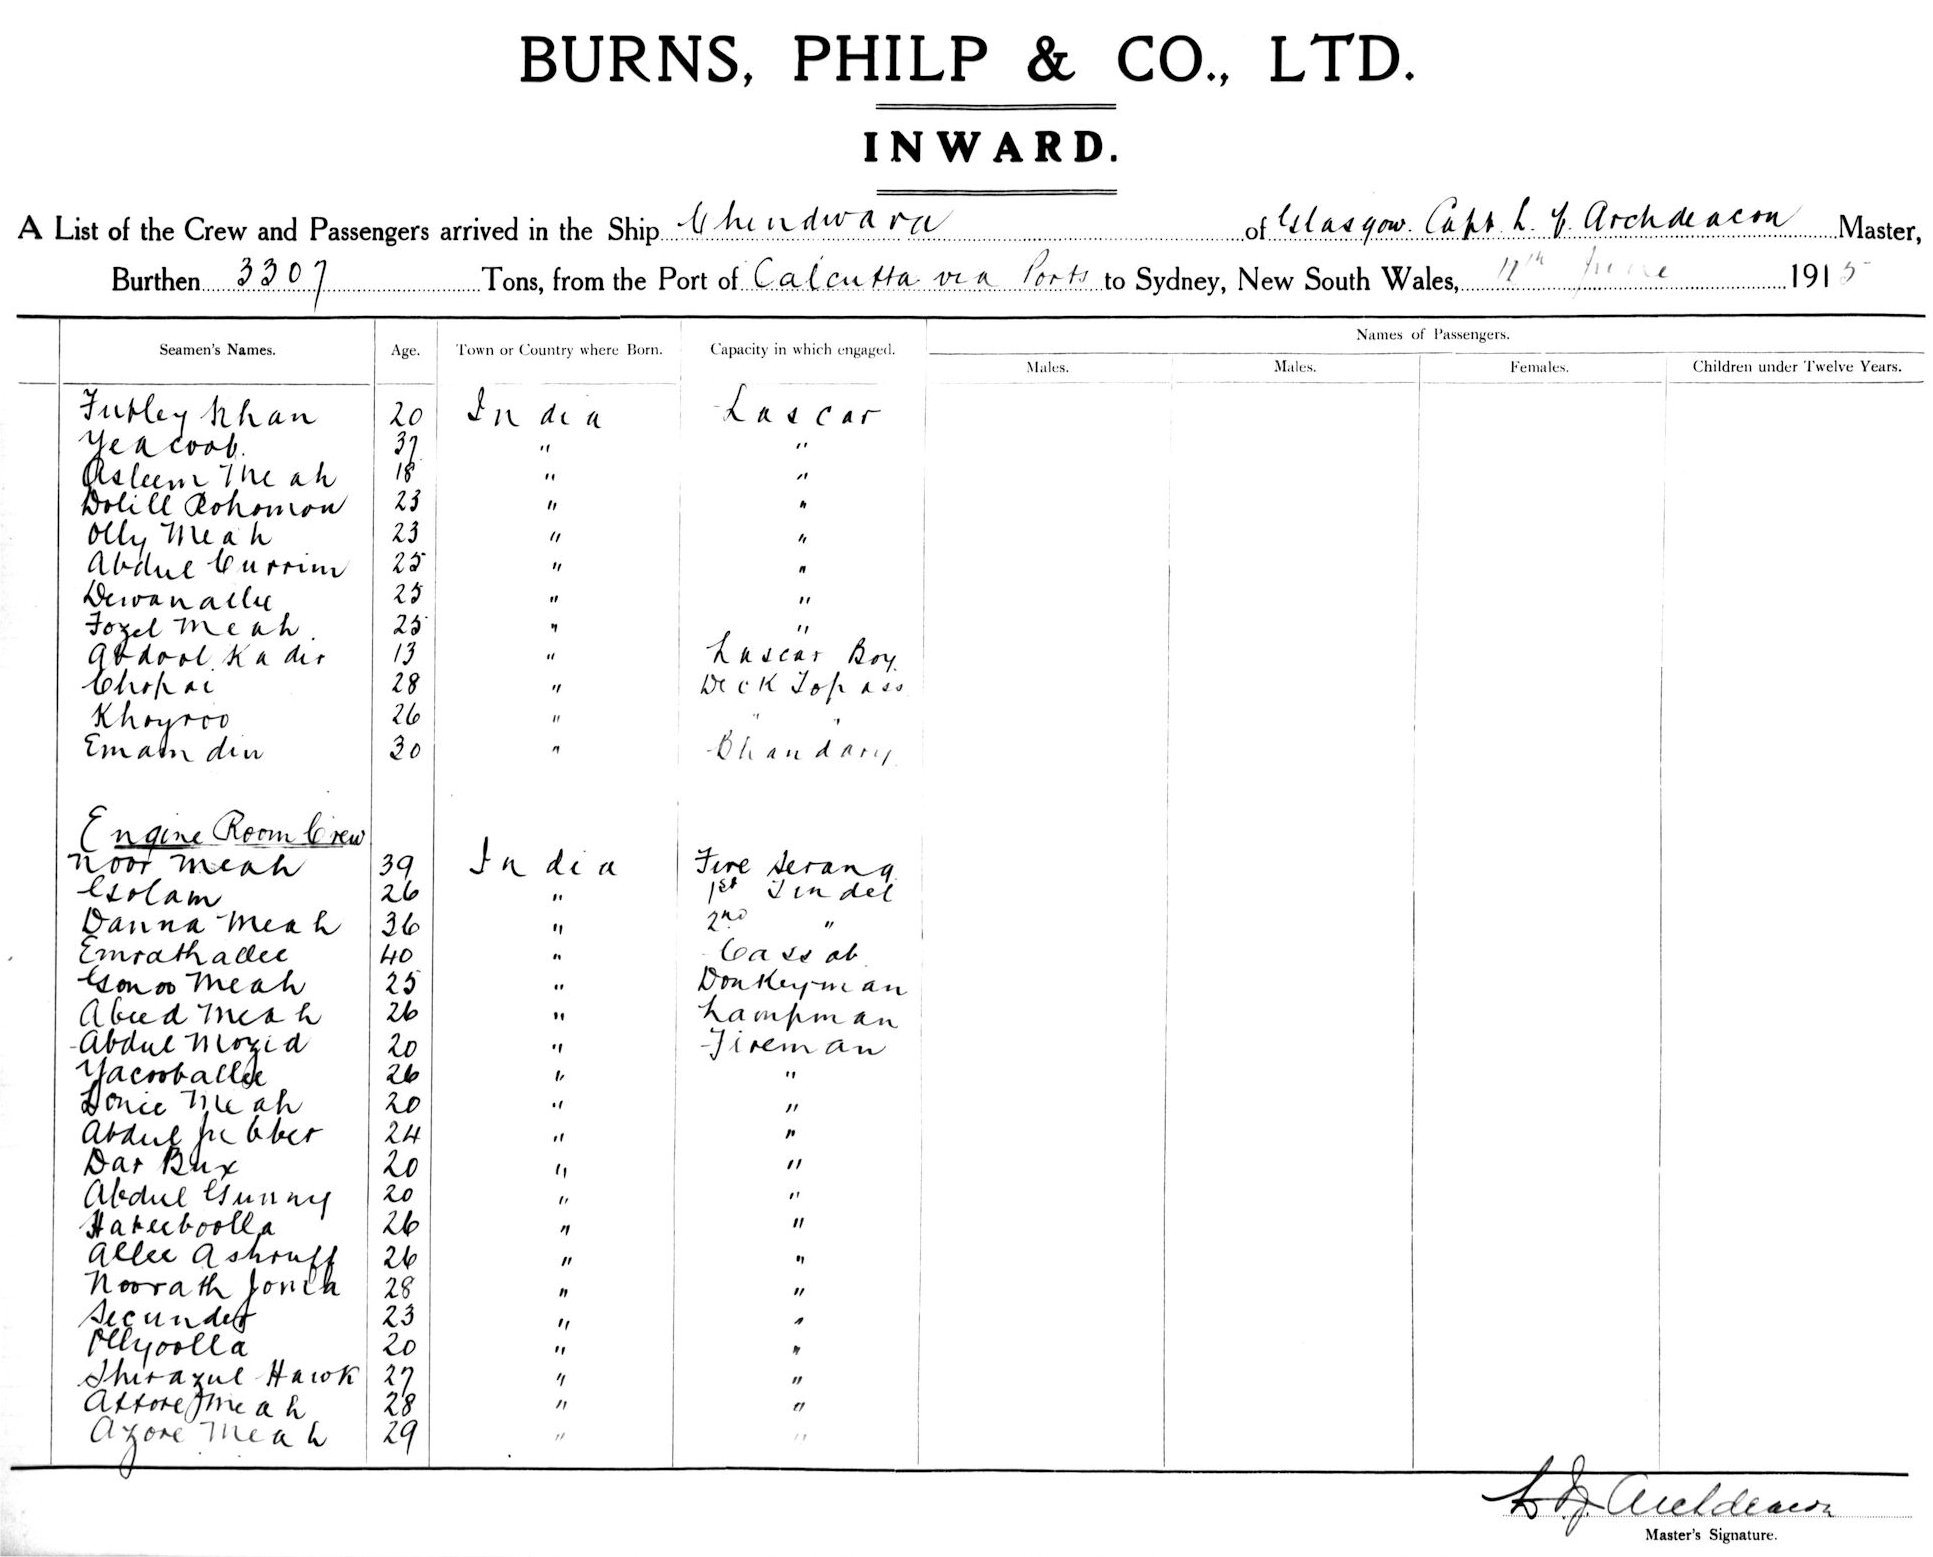 BURNS, PHILP & CO., LTD.
INWARD.
A List of the Crew and Passengers arrived in the Ship Chindwara of Glasgow. Capt. L. J. Archdeacon Master,
Burthen 3307 Tons, from the Port of Calcutta via Ports to Sydney, New South Wales, June 1915
Names of Passengers.
Seamen's Names. Age. Town or Country where Born. Capacity in which engaged. Males. Males. Females. Children under Twelve Years.
Khan 20 India Lascar
Yeacoob. 37 " "
Asleem Meah 18 " "
Dolill Rohomon 23 " "
Olly Meah 23 " "
Abdul Currim 25 " "
Dewanallee 25 " "
Fozel Meah. 25 " "
Abdool Kadir 13 " Lascar Boy
Chopai 28 " Deck Topass
Khoyroo 26 " " "
Emam din 30 " Bhandary
Engine Room Crew
Noor Meah 39 India Fire Serang
Golam 26 " 1st Tindel
Danna Meah 36 " 2nd "
Emrathallee 40 " Cassab
Gonoo Meah 25 " Donkeyman
Abeed Meah 26 " Lampman
Abdul Mozid 20 " Fireman
Yacooballee 26 " "
Sonie Meah 20 " "
Abdul Jubber 24 " "
Dar Bux 20 " "
Abdul Gunny 20 " "
Habeeboolla 26 " "
Allee Ashruff 26 " "
Noorath 28 " "
Secunder 23 " "
Ollyoolla 20 " "
Shirazul Hawk 27 " "
Attore Meah 28 " "
Azore Meah 29 " "
L J. Archdeacon
Master's Signature.